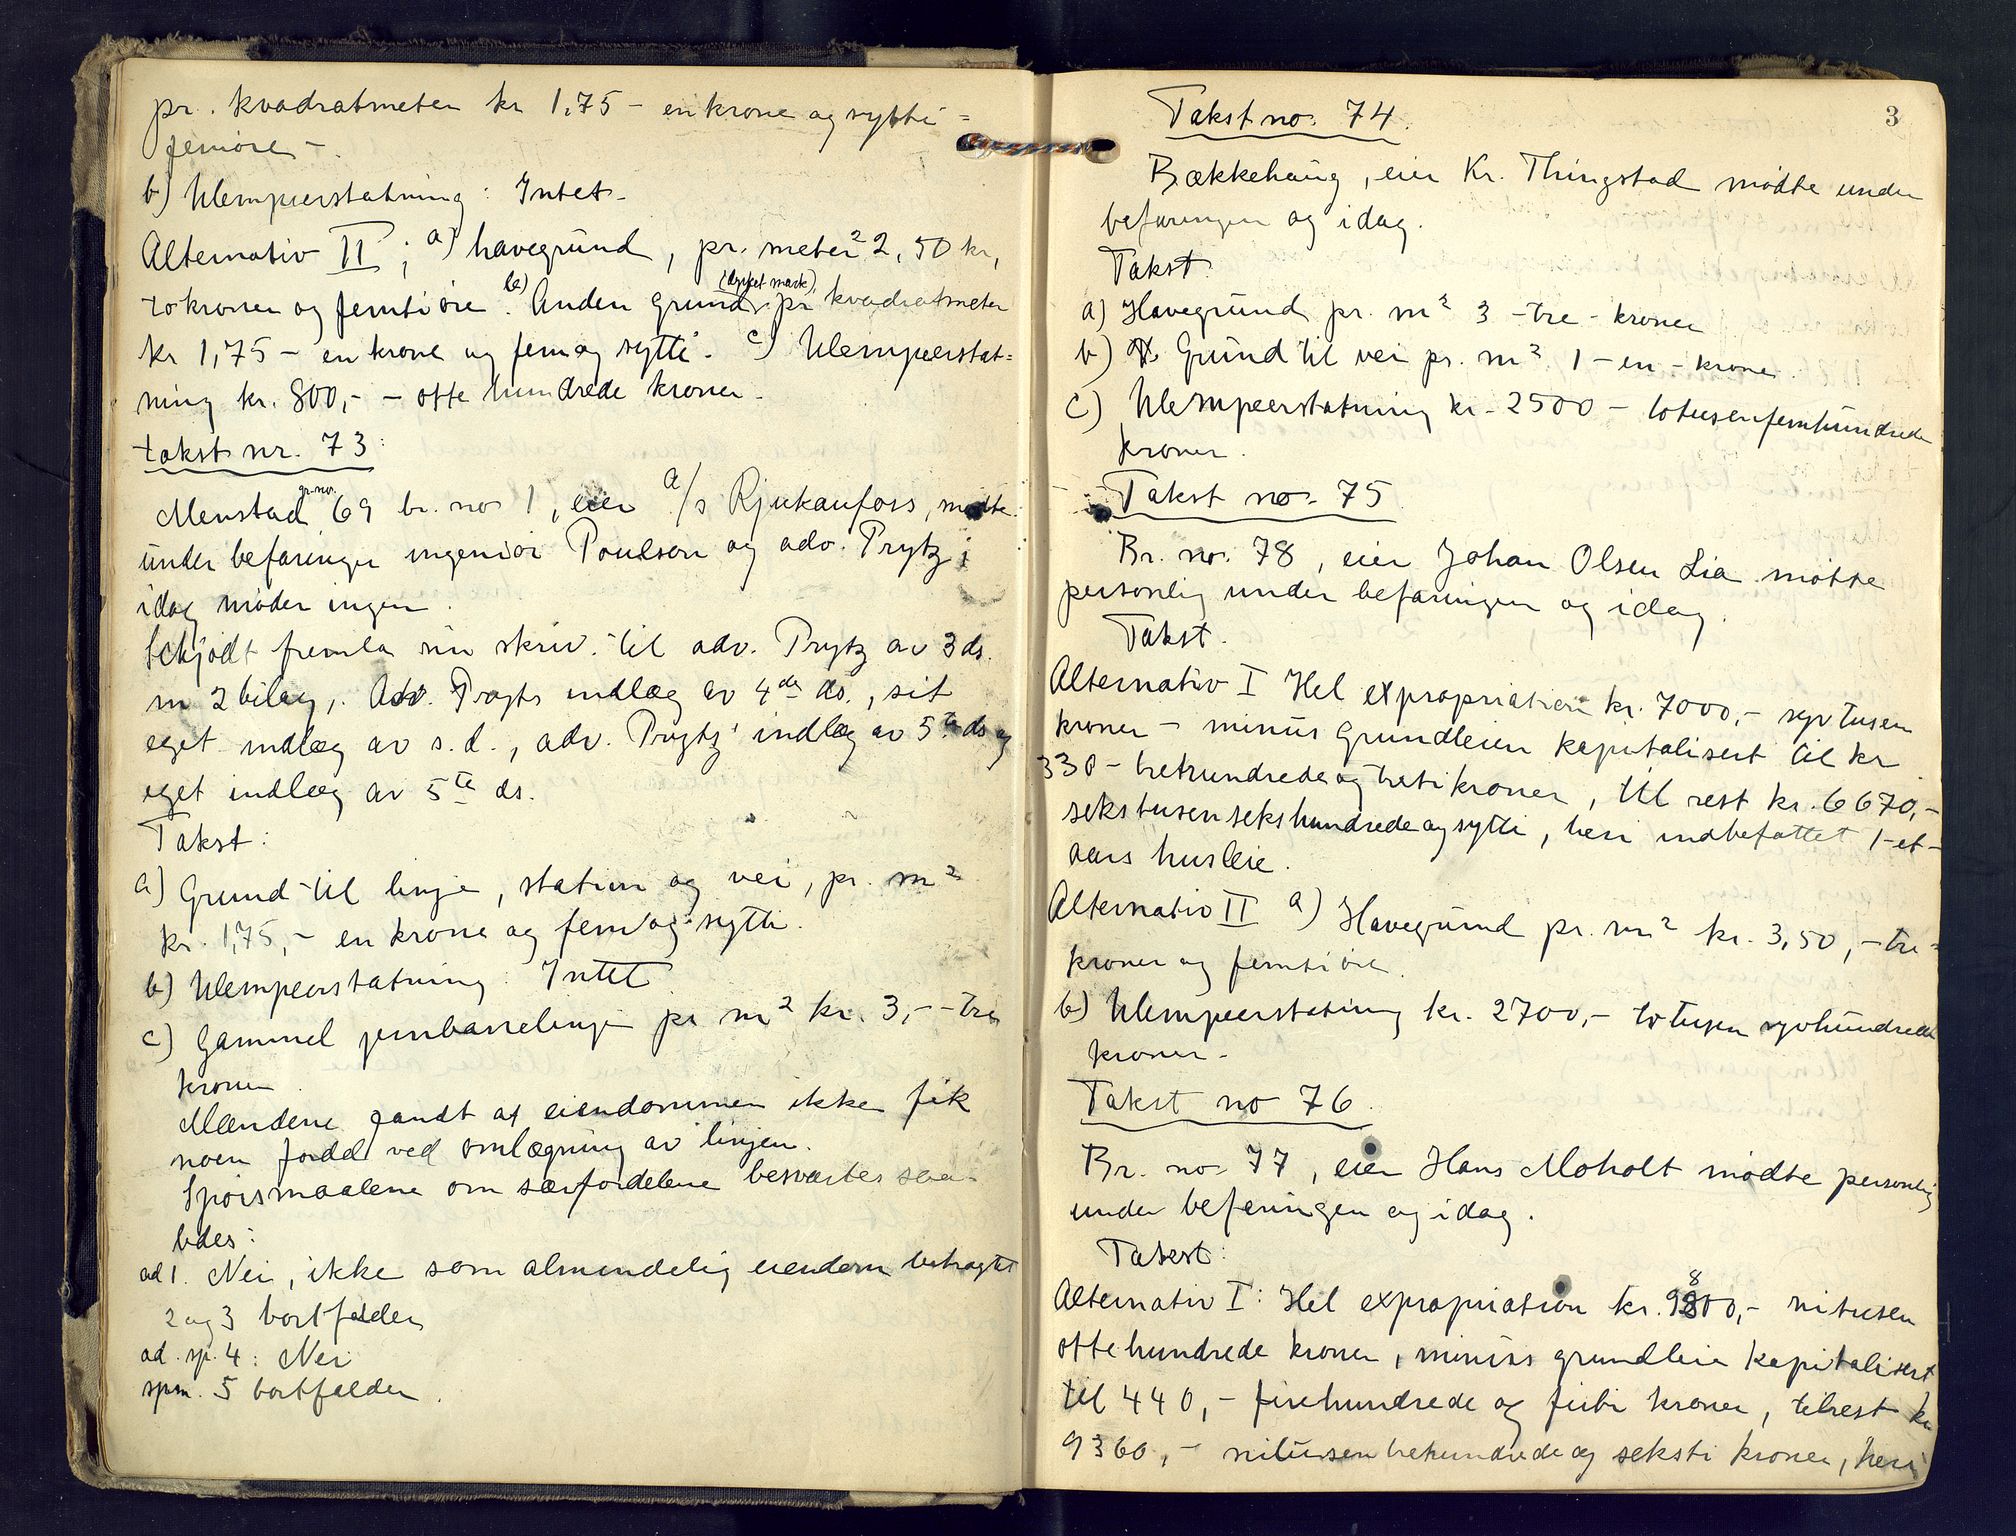 pr. kvadratmeter kr 1,75 – en krone og sytti=
femöre –.
b) Ulempeerstatning: Intet.
Alternativ II; a) havegrund, pr. meter² 2,50 kr,
to kroner og femtiöre. b) Anden grund (dyrket mark) pr kvadratmeter
kr 1,75 – en krone og femogsytti. c) Ulempeerstat=
ning kr. 800,- – otte hundrede kroner.
takst nr. 73:
Menstad gr.no. 69 br. no 1, eier A/s Rjukanfoss, mötte
under befaringen ingeniör Poulsson og adv. Prytz;
idag möder ingen.
Schjödt fremla sin skriv. til adv. Prytz av 3 ds.
m 2 bilag, Adv. Prytz indlæg av 4de ds., sit
eget indlæg av s.d., adv. Prytz' indlæg av 5te ds og
eget indlæg av 5te ds.
Takst:
a) Grund til linje, station og vei, pr. m²
kr. 1,75,- en krone og femogsytti.
b) Ulempeerstatning: Intet
c) Gammel jernbanelinje pr m² kr. 3,- – tre
kroner.
Mændene fandt at eiendommen ikke fik
noen fordel ved omlægning av linjen.
Spörsmaalene om særfordelene besvartes saa=
ledes:
ad 1. Nei, ikke som almindelig eiendom betragtet
2 og 3 bortfalder
ad. sp. 4: Nei
spm. 5 bortfalder.
3
Takst no. 74.
Bækkehaug, eier Kr. Thingstad mödte under
befaringen og idag.
Takst:
a) Havegrund pr. m² 3 – tre – kroner
b) Grund til vei pr. m² 1 – en – krone.
c) Ulempeerstatning kr. 2500 – totusenfemhundrede
kroner.
Takst no. 75
Br. no. 78, eier Johan Olsen Lia mötte
personlig under befaringen og idag.
Takst.
Alternativ I Hel expropriation kr. 7000,- syvtusen
kroner – minus grundleien kapitalisert til kr
330 – trehundrede og treti kroner, til rest kr. 6670,-
sekstusensekshundredeogsytti, heri indbefattet 1 – et –
aars husleie.
Alternativ II a) Havegrund pr. m² kr. 3,50,- tre=
kroner og femtiöre.
b) Ulempeerstatning kr. 2700,- totusen syvhundrede
kroner.
Takst no 76.
Br. no 77, eier Hans Moholt mödte personlig
under befaringen og idag.
Takst:
Alternativ I: Hel expropriation kr. 9800,- nitusen
ottehundrede kroner, minus grundleie kapitalisert
til 440,- firehundrede og firti kroner, tilrest kr
9360,- nitusentrehundrede og seksti kroner, heri